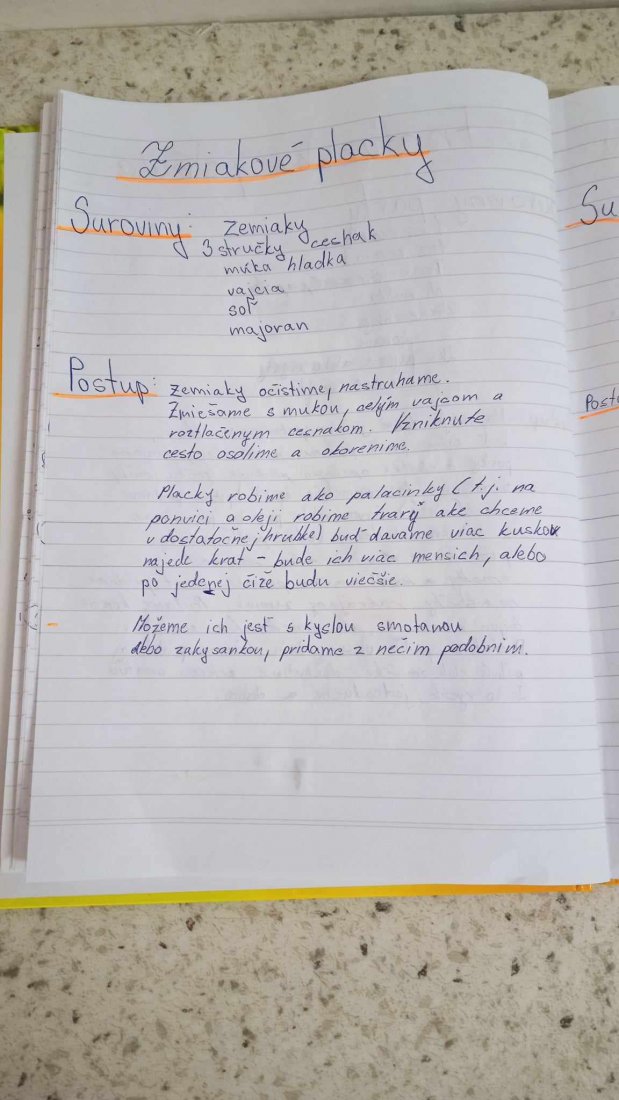 Zmiakové placky
Suroviny: zemiaky
3 stručky cesnak
múka hladka
vajcia
soľ
majoran
Postup: zemiaky očistime, nastruhame.
Zmiešame s mukou, celým vajcom a
roztlačenym cesnakom. Vzniknute
cesto osolime a okorenime.
Placky robime ako palacinky (t.j. na
ponvici a oleji robime tvary ake chceme
v dostatočnej hrubke) buď davame viac kuskov
najedc krať - bude ich viac mensich, alebo
po jedenej čiže budu viečšie.
Možeme ich jesť s kyslou smotanou
alebo zakysankou, pridame z nečim podobnim.
Su
Posto